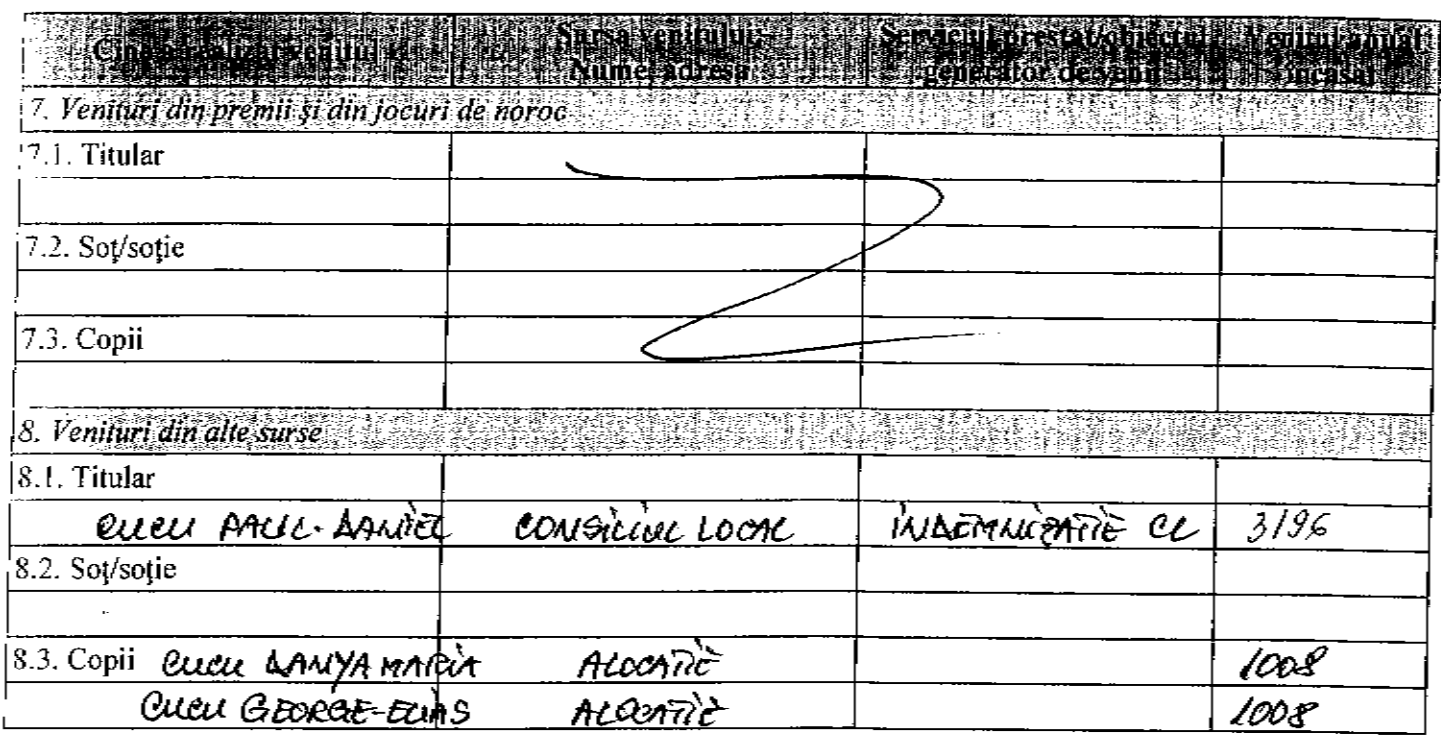 Cine a realizat venitul Sursa venitului: Serviciul prestat/obiectul Venitul anual
Nume, adresa generator de venit încasat
7. Venituri din premii şi din jocuri de noroc
7.1. Titular
7.2. Soţ/soţie
7.3. Copii
8. Venituri din alte surse
8.1. Titular
CUCU PAUL-DANIEL CONSILIUL LOCAL INDEMNIZATIE CL 3196
8.2. Soţ/soţie
8.3. Copii CUCU DANYA MARIA ALOCATIE 1008
CUCU GEORGE-ELIAS ALOCATIE 1008